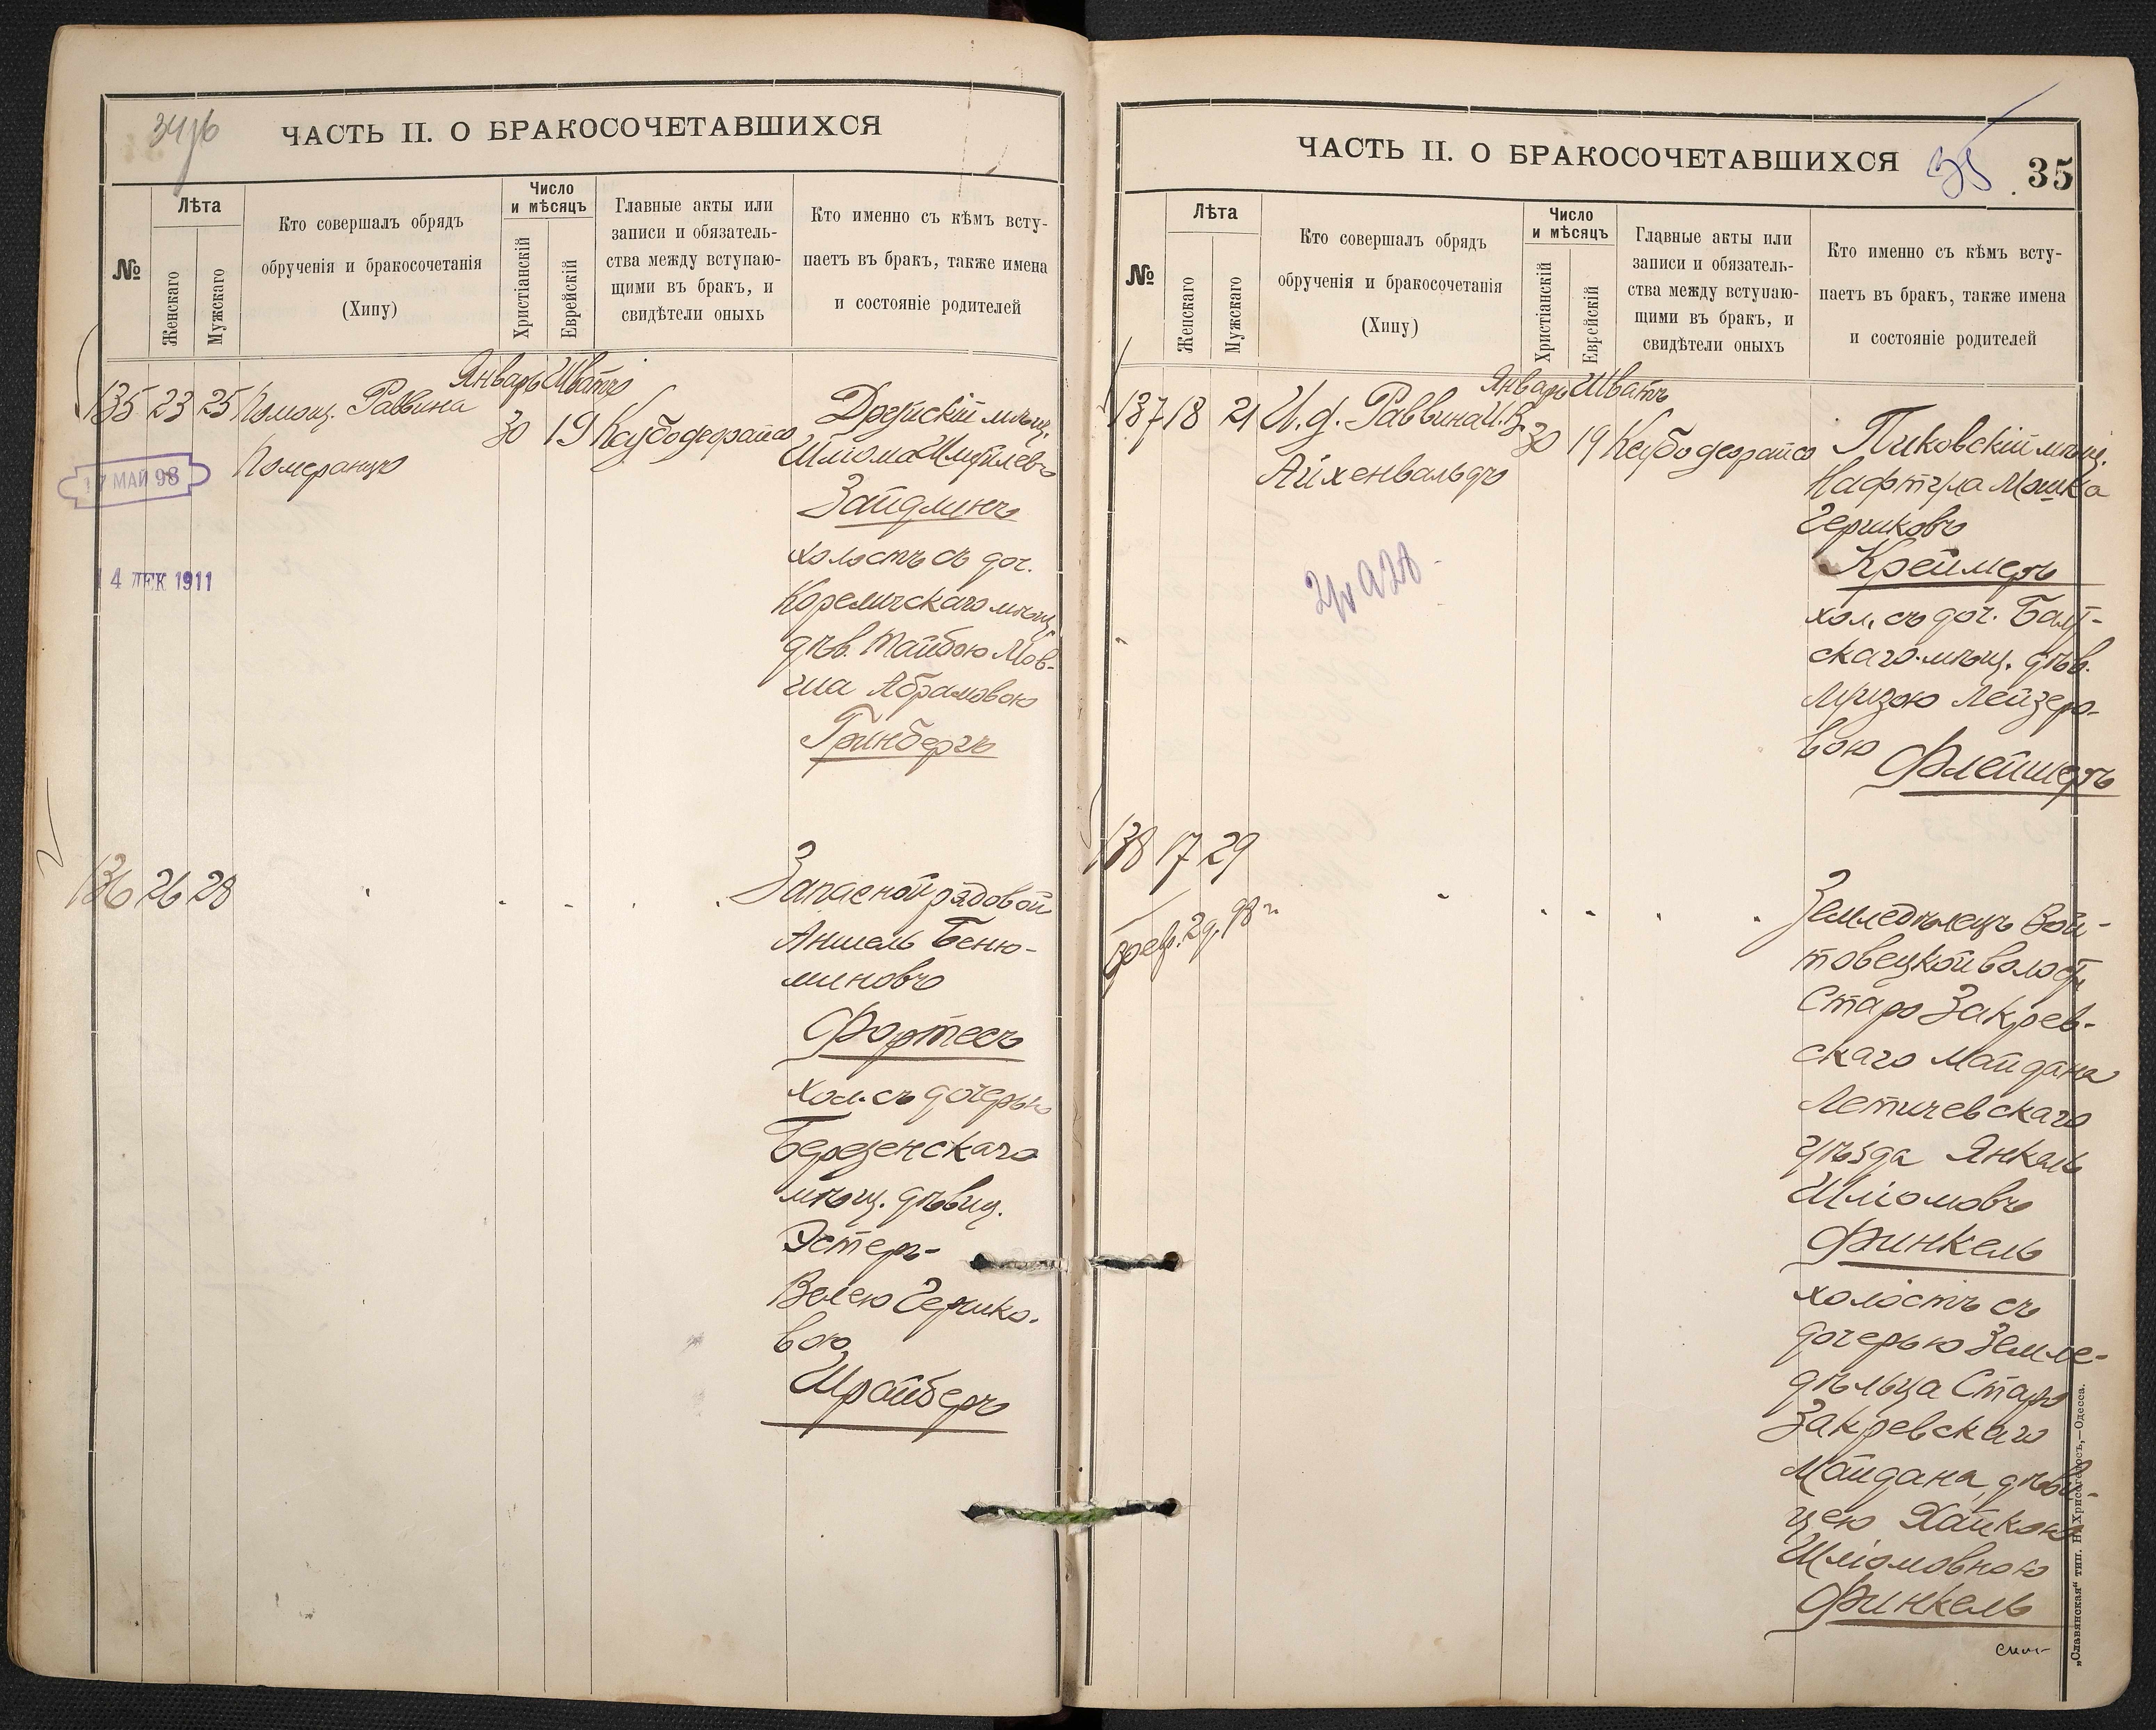 ЧАСТЬ II. О БРАКОСОЧЕТАВШИХСЯ
№
Лѣта
Женскаго
Мужскаго
Кто совершалъ обрядъ
обрученія и бракосочетанія
(Хипу)
Число
и мѣсяцъ
Христіанскій
Еврейскій
Главные акты или
записи и обязатель-
ства между вступаю-
щими въ бракъ, и
свидѣтели оныхъ
Кто именно съ кѣмъ всту-
паетъ въ бракъ, также имена
и состояніе родителей
Январь Шватъ
135 23 25 Помощ. Раввина
Померанцъ
30 19 Ксубодеорайсо
мѣщ.
Шліома
Зайдлинъ
холостъ съ доч.
Кореличскаго мѣщ.
дѣв. Тайбою Мов-
ша Абрамовою
Гринбергъ
17 МАЙ 98
4 ДЕК 1911
136 26 28
Запасной рядовой
Аншель Беню-
миновъ
Фортесъ
хол. съ дочерью
Березенскаго
мѣщ. дѣвиц.
Эстеръ-
Велею Гершко-
вою
Шрайберъ
ЧАСТЬ II. О БРАКОСОЧЕТАВШИХСЯ
35
35
№
Лѣта
Женскаго
Мужскаго
Кто совершалъ обрядъ
обрученія и бракосочетанія
(Хипу)
Число
и мѣсяцъ
Христіанскій
Еврейскій
Главные акты или
записи и обязатель-
ства между вступаю-
щими въ бракъ, и
свидѣтели оныхъ
Кто именно съ кѣмъ всту-
паетъ въ бракъ, также имена
и состояніе родителей
Январь Шватъ
137 18 21 И. д. Раввина И. В.
Айхенвальдъ
30 19 Ксубодеорайсо
Пиковскій мѣщ.
Нафтула Мошка
Гершковъ
Креймеръ
хол. съ доч. Балт-
скаго мѣщ. дѣв.
Лузою Лейзеро-
вою
Флейшеръ
138 17 29
Земледѣлецъ Вой-
товецкой волости
Старо Закрев-
скаго Майдана
Летичевскаго
уѣзда Янкель
Шліомовъ
Финкель
холостъ съ
дочерью Земле-
дѣльца Старо
Закревскаго
Майдана, дѣви-
цею Хайкою
Шліомовною
Финкель
„Славянская“ тип. Н. Хрисогелосъ,—Одесса.